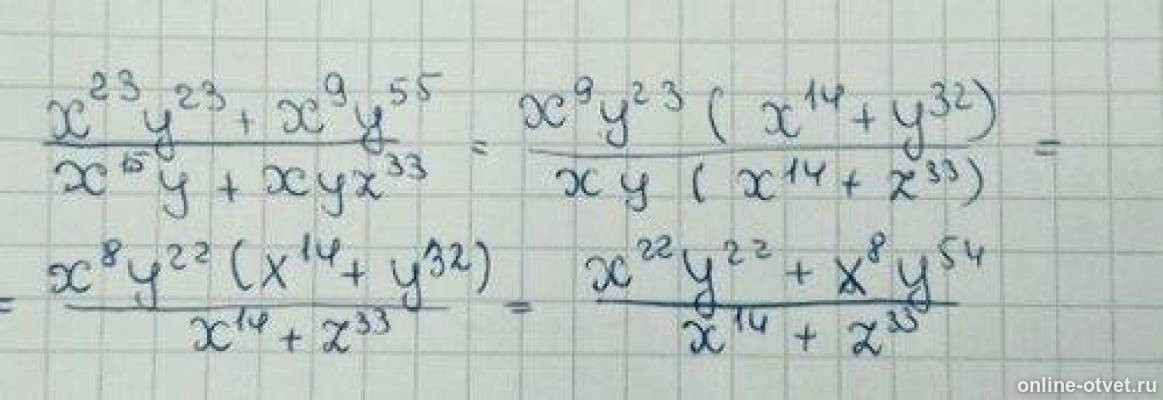 \frac{x^{23}y^{23} + x^{9}y^{55}}{x^{15}y + xyz^{33}} = \frac{x^{9}y^{23}(x^{14} + y^{32})}{xy(x^{14} + z^{33})} =
= \frac{x^{8}y^{22}(x^{14} + y^{32})}{x^{14} + z^{33}} = \frac{x^{22}y^{22} + x^{8}y^{54}}{x^{14} + z^{33}}
online-otvet.ru